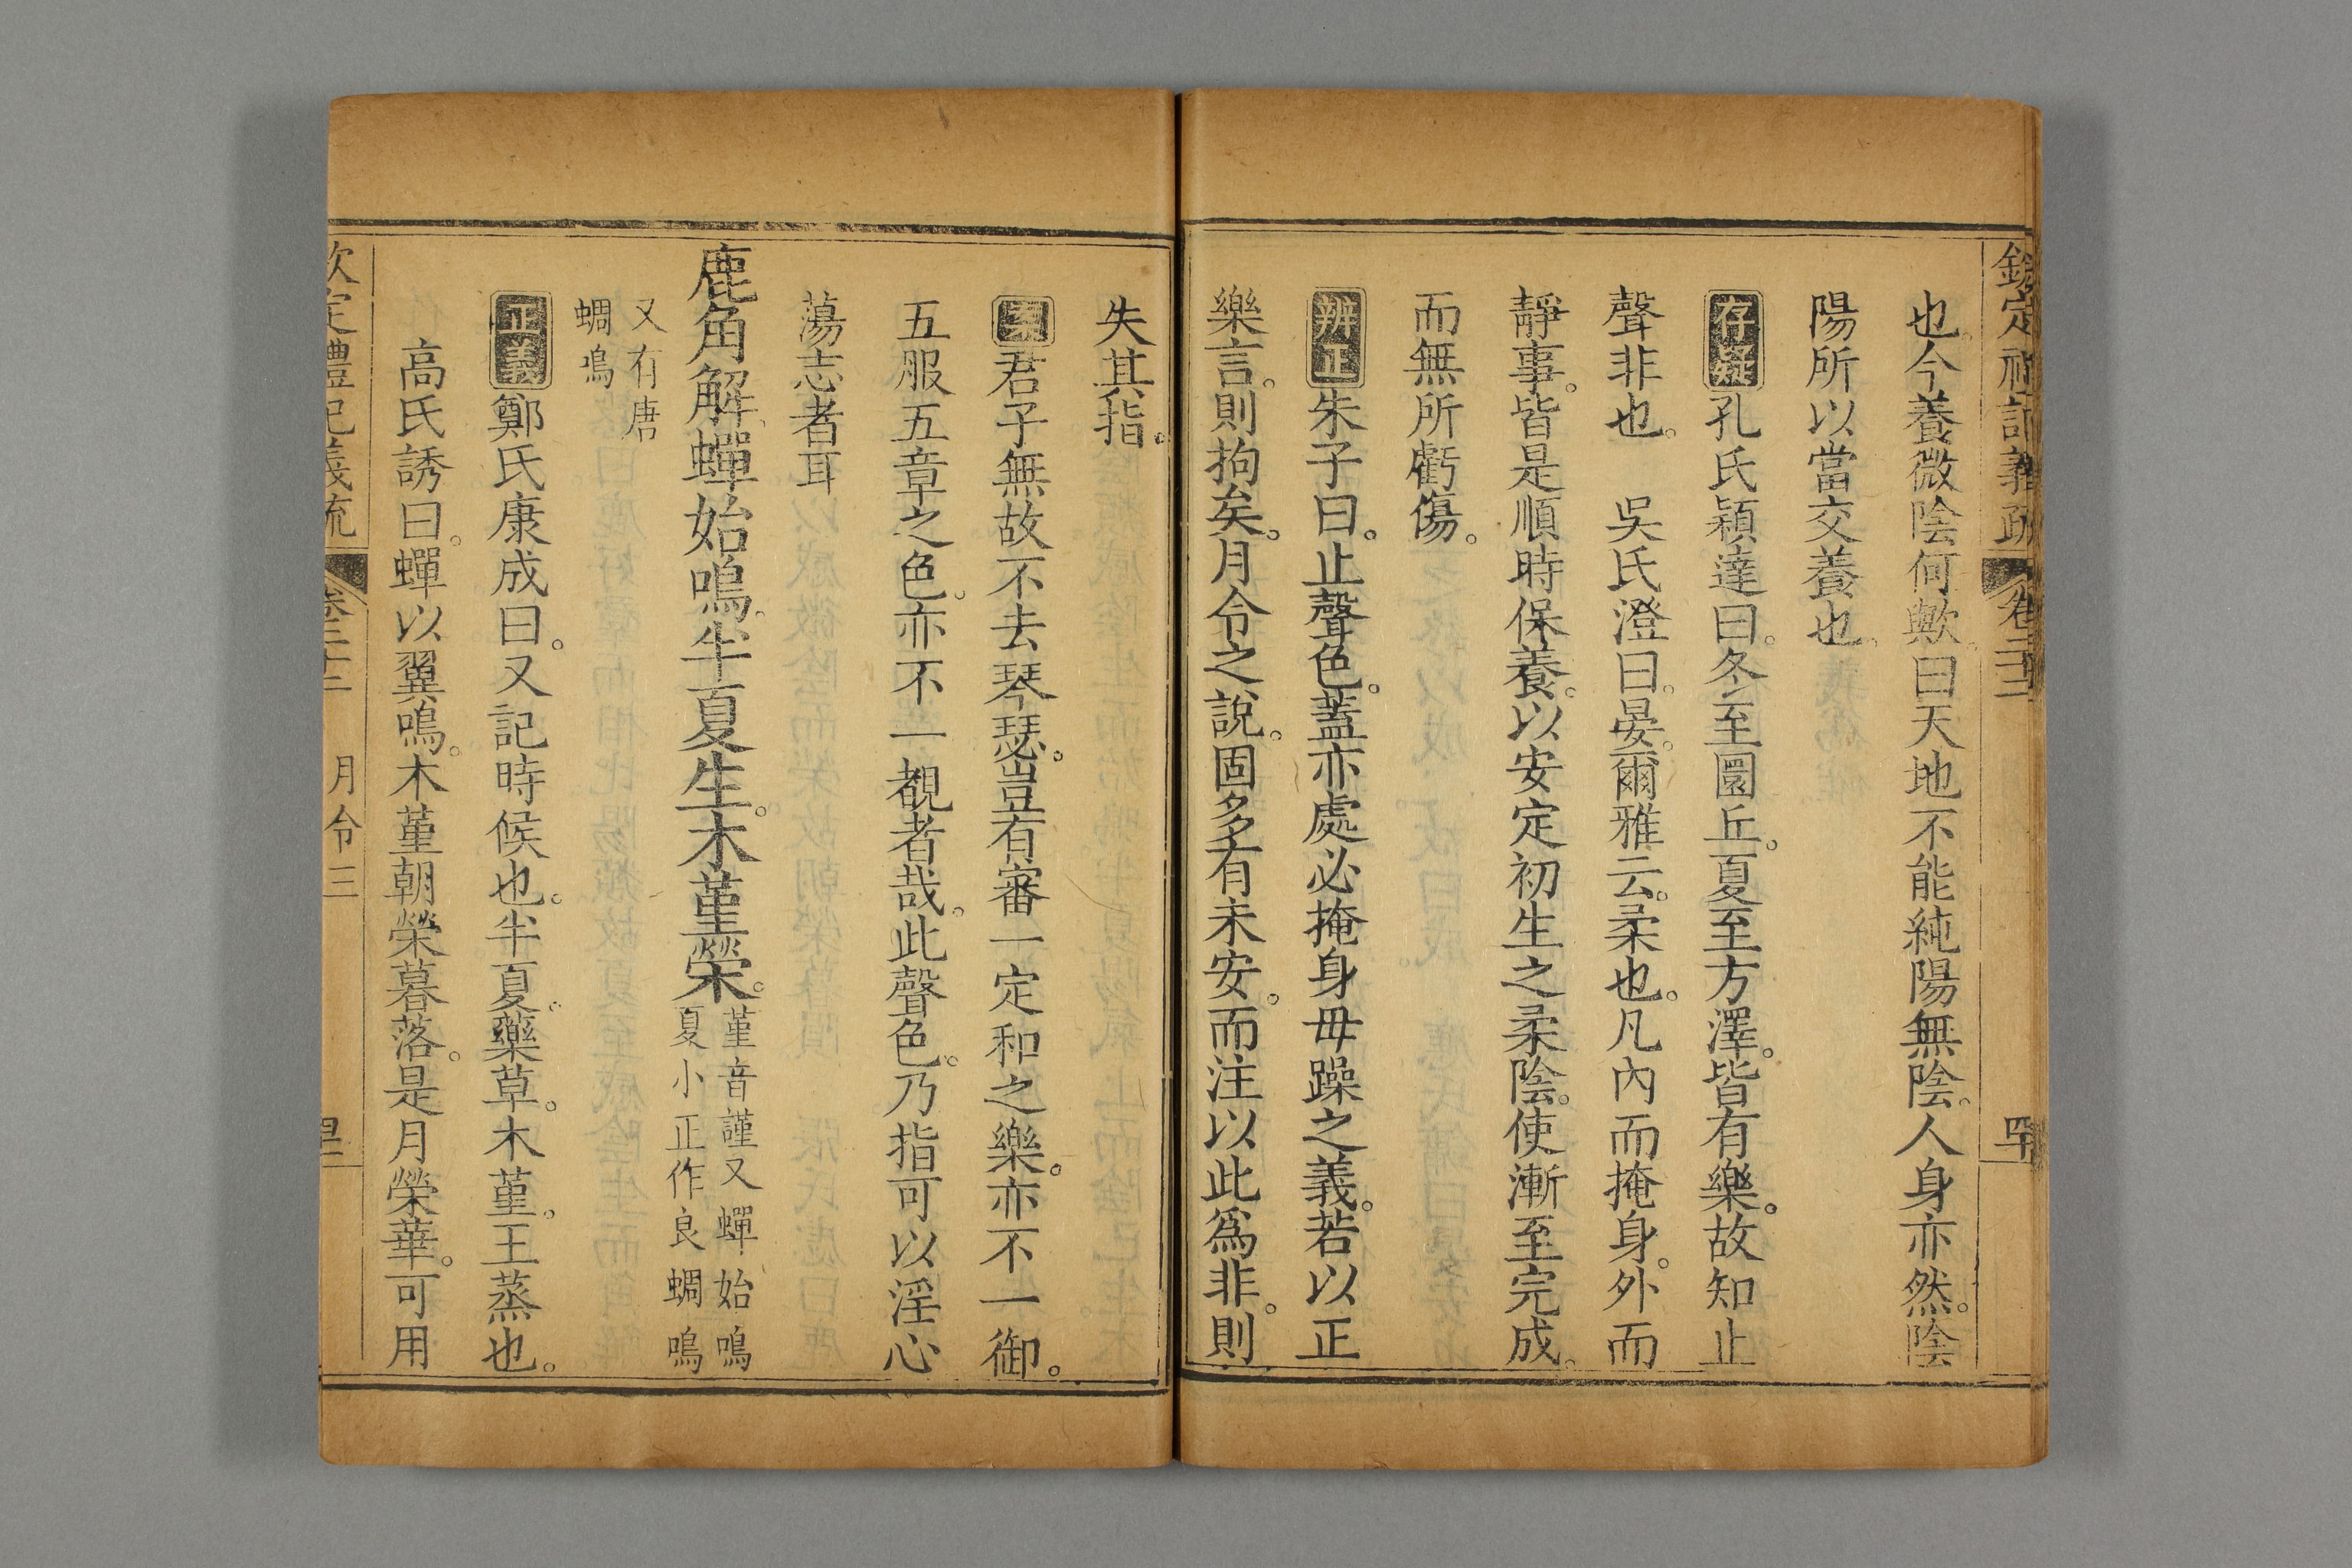 欽定禮記義疏 卷二十二 四十
也今養微陰何歟曰天地不能純陽無陰人身亦然陰
陽所以當交養也
存疑 孔氏穎達曰冬至圜丘夏至方澤皆有樂故知止
聲非也 吳氏澄曰晏爾雅云柔也凡內而掩身外而
靜事皆是順時保養以安定初生之柔陰使漸至完成
而無所虧傷
辨正 朱子曰止聲色蓋亦處必掩身毋躁之義若以正
樂言則拘矣月令之說固多有未安而注以此爲非則
失其指
案 君子無故不去琴瑟豈有審一定和之樂亦不一御
五服五章之色亦不一覩者哉此聲色乃指可以淫心
蕩志者耳
鹿角解蟬始鳴半夏生木菫榮 菫音謹又蟬始鳴
夏小正作良蜩鳴
又有唐
蜩鳴
正義 鄭氏康成曰又記時候也半夏藥草木菫王蒸也
高氏誘曰蟬以翼鳴木菫朝榮暮落是月榮華可用
欽定禮記義疏 卷二十二 月令三